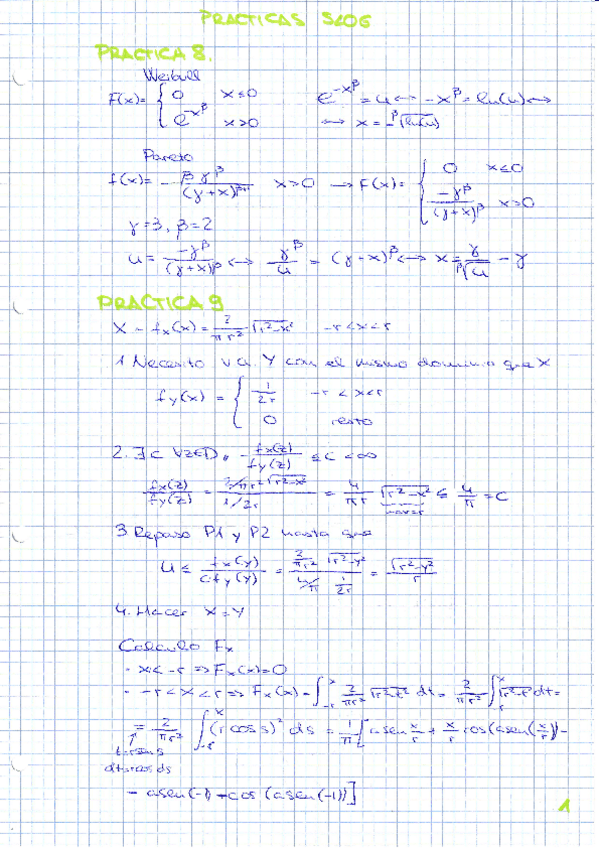 PRACTICAS SLOG
PRACTICA 8.
Weibull
F(x)= { 0 x≤0
e^-x^β x>0
e^-x^β = u ↔ -x^β = ln(u) ↔
↔ x = -^β√ln(u)
Pareto
f(x)= - βγ^β/(γ+x)^β+1 x>0 → F(x)= { 0 x≤0
-γ^β/(γ+x)^β x>0
γ=3, β=2
u = -γ^β/(γ+x)^β ↔ γ^β/u = (γ-x)^β ↔ x = γ/^β√u - γ
PRACTICA 9
X ~ fx(x) = 2/πr² √r²-x² -r<x<r
1 Necesito va. Y con el mismo dominio que X
fy(x) = { 1/2r -r<x<r
0 resto
2. ∃c ∀z∈D, fx(z)/fy(z) ≤ c < ∞
fx(z)/fy(z) = 2/πr² √r²-x² / 1/2r = 4/πr √r²-x² ≤ 4/π = C
max=r
3 Repaso P1 y P2 hasta que
U ≤ fx(y)/c fy(y) = 2/πr² √r²-y² / 4/π 1/2r = √r²-y²/r
4. Hacer X=Y
Calculo Fx
- x<-r ⇒ Fx(x)=0
- -r<x<r ⇒ Fx(x) = ∫_-r^x 2/πr² √r²-t² dt = 2/πr² ∫_-r^x √r²-t² dt =
= 2/πr² ∫_-r^x (r cos s)² ds = 1/π [asen x/r + x/r cos(asen(x/r)) -
t=r sen s
dt=r cos ds
- asen(-1) + cos(asen(-1))]
1